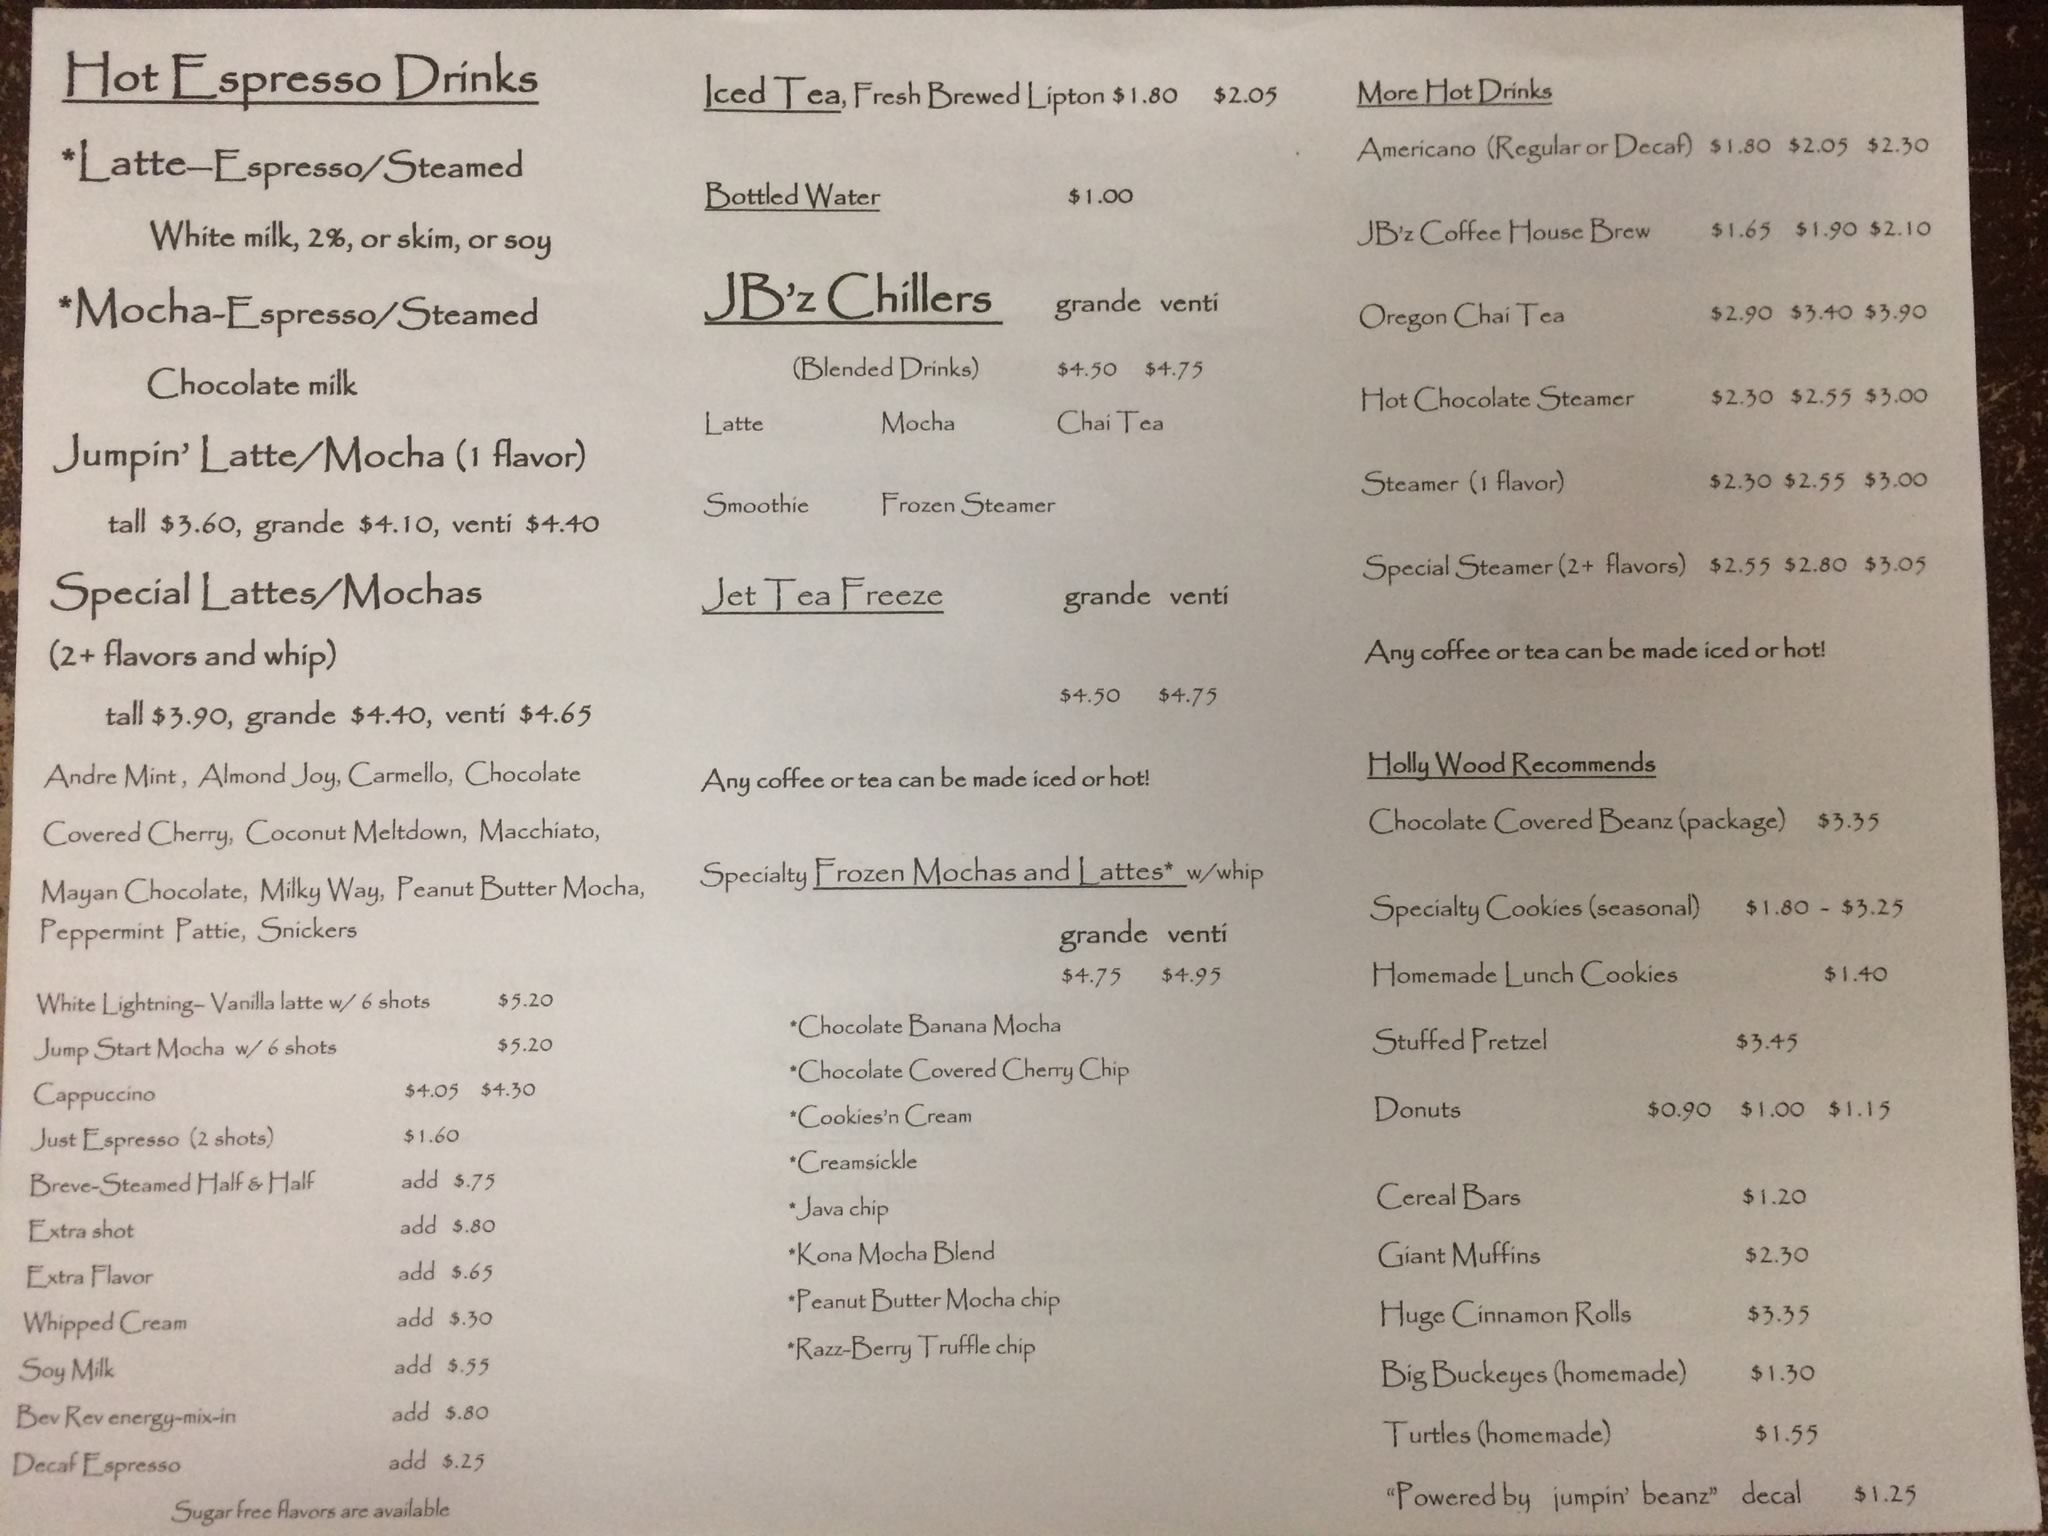 Hot Espresso Drinks
*Latte—Espresso/Steamed
White milk, 2%, or skim, or soy
*Mocha-Espresso/Steamed
Chocolate milk
Jumpin' Latte/Mocha (1 flavor)
tall $3.60, grande $4.10, venti $4.40
Special Lattes/Mochas
(2+ flavors and whip)
tall $3.90, grande $4.40, venti $4.65
Andre Mint , Almond Joy, Carmello, Chocolate
Covered Cherry, Coconut Meltdown, Macchiato,
Mayan Chocolate, Milky Way, Peanut Butter Mocha,
Peppermint Pattie, Snickers
White Lightning– Vanilla latte w/ 6 shots $5.20
Jump Start Mocha w/ 6 shots $5.20
Cappuccino $4.05 $4.30
Just Espresso (2 shots) $1.60
Breve-Steamed Half & Half add $.75
Extra shot add $.80
Extra Flavor add $.65
Whipped Cream add $.30
Soy Milk add $.55
Bev Rev energy-mix-in add $.80
Decaf Espresso add $.25
Sugar free flavors are available
Iced Tea, Fresh Brewed Lipton $1.80 $2.05
Bottled Water $1.00
JB'z Chillers grande venti
(Blended Drinks) $4.50 $4.75
Latte Mocha Chai Tea
Smoothie Frozen Steamer
Jet Tea Freeze grande venti
$4.50 $4.75
Any coffee or tea can be made iced or hot!
Specialty Frozen Mochas and Lattes* w/whip
grande venti
$4.75 $4.95
*Chocolate Banana Mocha
*Chocolate Covered Cherry Chip
*Cookies'n Cream
*Creamsickle
*Java chip
*Kona Mocha Blend
*Peanut Butter Mocha chip
*Razz-Berry Truffle chip
More Hot Drinks
Americano (Regular or Decaf) $1.80 $2.05 $2.30
JB'z Coffee House Brew $1.65 $1.90 $2.10
Oregon Chai Tea $2.90 $3.40 $3.90
Hot Chocolate Steamer $2.30 $2.55 $3.00
Steamer (1 flavor) $2.30 $2.55 $3.00
Special Steamer (2+ flavors) $2.55 $2.80 $3.05
Any coffee or tea can be made iced or hot!
Holly Wood Recommends
Chocolate Covered Beanz (package) $3.35
Specialty Cookies (seasonal) $1.80 - $3.25
Homemade Lunch Cookies $1.40
Stuffed Pretzel $3.45
Donuts $0.90 $1.00 $1.15
Cereal Bars $1.20
Giant Muffins $2.30
Huge Cinnamon Rolls $3.35
Big Buckeyes (homemade) $1.30
Turtles (homemade) $1.55
"Powered by jumpin' beanz" decal $1.25